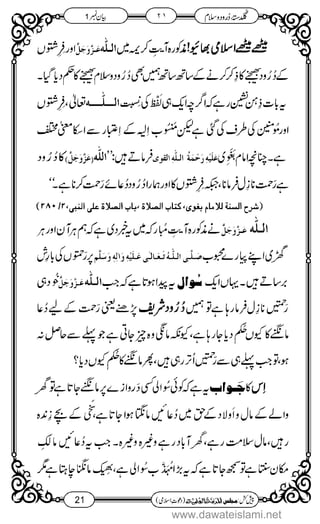 گلدستۂ درود و سلام ۲۱ بیان نمبر ۱
میٹھے میٹھے اسلامی بھائیو! مذکورہ آیتِ کریمہ میں اللہ عَزَّوَجَلَّ اور فرشتوں
کے دُرُود بھیجنے کا ذکر کرنے کے ساتھ ساتھ ہمیں بھی دُرُود و سلام بھیجنے کا حکم دیا گیا۔
یہ بات ذہن نشین رہے کہ اگرچہ ایک ہی لَفْظ کی نسبت اللہ تعالٰی، فرشتوں
اور مؤمنین کی طرف کی گئی ہے لیکن مَنْسُوب اِلَیہ کے اعتبار سے اس کا معنی مختلف
ہے۔ چنانچہ امام بَغَوِی عَلَیْہِ رَحْمَۃُ اللہِ القوی فرماتے ہیں: ’’اللہ (عَزَّوَجَلَّ) کا دُرُود
رحمت نازل فرمانا، جبکہ فرشتوں کا اور ہمارا دُرُود دُعائے رحمت کرنا ہے۔‘‘
(شرح السنة للامام بغوی، کتاب الصلاة، باب الصلاة علی النبی، ۲/ ۲۸۰)
اللہ عَزَّوَجَلَّ نے مذکورہ آیتِ مُبارکہ میں یہ خبر دی ہے کہ ہم ہر آن اور ہر
گھڑی اپنے پیارے محبوب صَلَّی اللہُ تَعَالٰی عَلَیْہِ وَاٰلِہٖ وَسَلَّم پر رحمتوں کی بارش
برساتے ہیں۔ یہاں ایک سُوال پیدا ہوتا ہے کہ جب اللہ عَزَّوَجَلَّ خود ہی
رحمتیں نازل فرما رہا ہے تو ہمیں دُرُود شریف پڑھنے یعنی رحمت کے لیے دُعا
مانگنے کا کیوں حکم دیا جا رہا ہے، کیونکہ مانگی وہ چیز جاتی ہے جو پہلے سے حاصل نہ
ہو، تو جب پہلے ہی سے رحمتیں اُتر رہی ہیں، پھر مانگنے کا حکم کیوں دیا؟
اِس کا جواب یہ ہے کہ کوئی سُوالی کسی دروازے پر مانگنے جاتا ہے تو گھر
والے کے مال و اَولاد کے حق میں دُعائیں مانگتا ہوا جاتا ہے، سخی کے بچے زندہ
رہیں، مال سلامت رہے، گھر آباد رہے وغیرہ وغیرہ۔ جب یہ دُعائیں مالک
مکان سنتا ہے تو سمجھ جاتا ہے کہ یہ بڑا مُہَذَّب سُوالی ہے، بھیک مانگنا چاہتا ہے مگر
21 پیش کش: مجلس المدینۃ العلمیۃ (دعوتِ اسلامی)
www.dawateislami.net